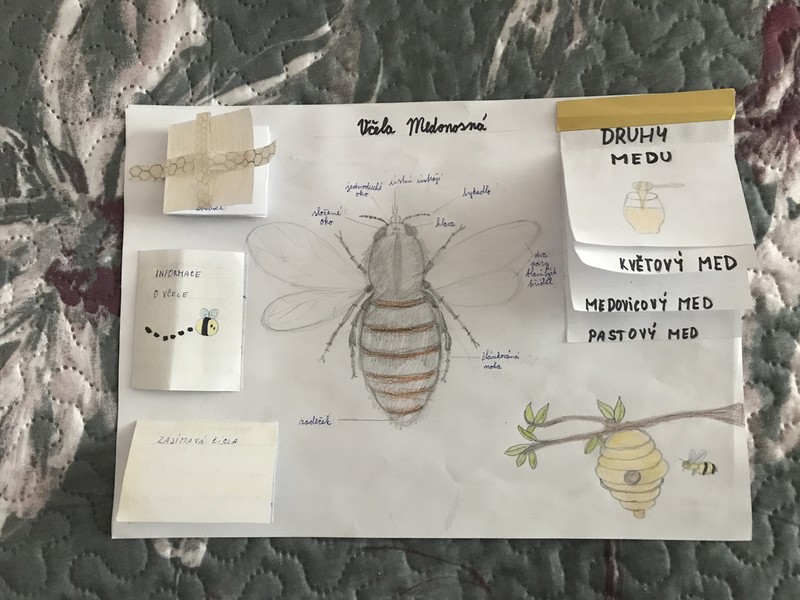 Včela Medonosná
jednoduché
oko
ústní ústrojí
tykadlo
složené
oko
hlava
dva
páry
blanitých
křídel
článkovaná
noha
zadeček
INFORMACE
O VČELE
ZAJÍMAVÁ ČÍSLA
DRUHY
MEDU
KVĚTOVÝ MED
MEDOVICOVÝ MED
PASTOVÝ MED